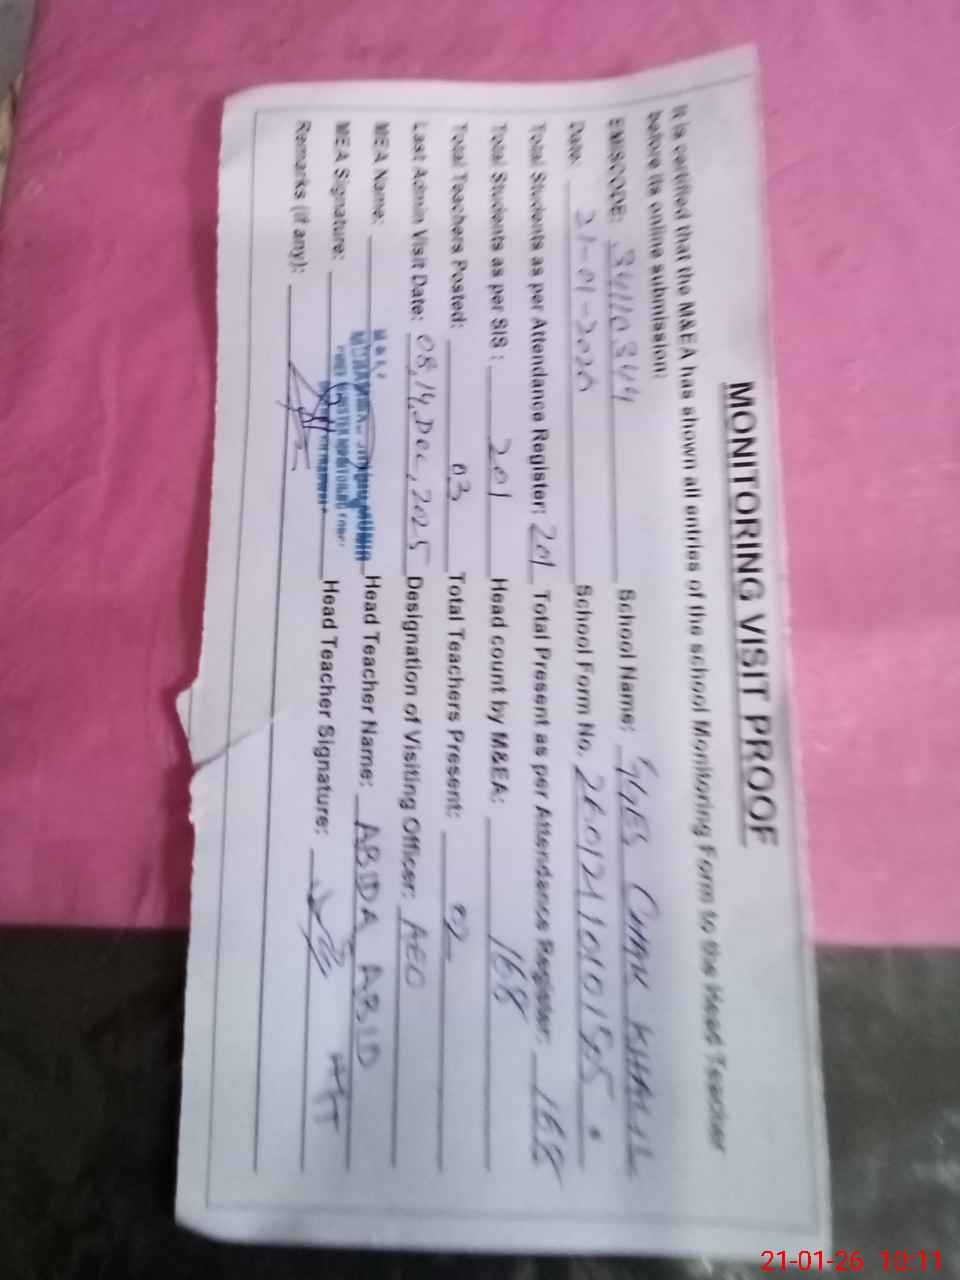 MONITORING VISIT PROOF
It is certified that the M&EA has shown all entries of the school Monitoring Form to the Head Teacher
before its online submission:
EMISCODE: 34110344 School Name: GGES CHAK KHALIL
Date. 21-01-2026 School Form No. 2601211010155
Total Students as per Attendance Register: 201 Total Present as per Attendance Register: 168
Total Students as per SIS: 201 Head count by M&EA: 168
Total Teachers Posted: 03 Total Teachers Present: 02
Last Admin Visit Date: 08,14,Dec,2025 Designation of Visiting Officer: AEO
MEA Name: Head Teacher Name: ABIDA ABID
MEA Signature: Head Teacher Signature: HT
Remarks (if any):
21-01-26 10:11